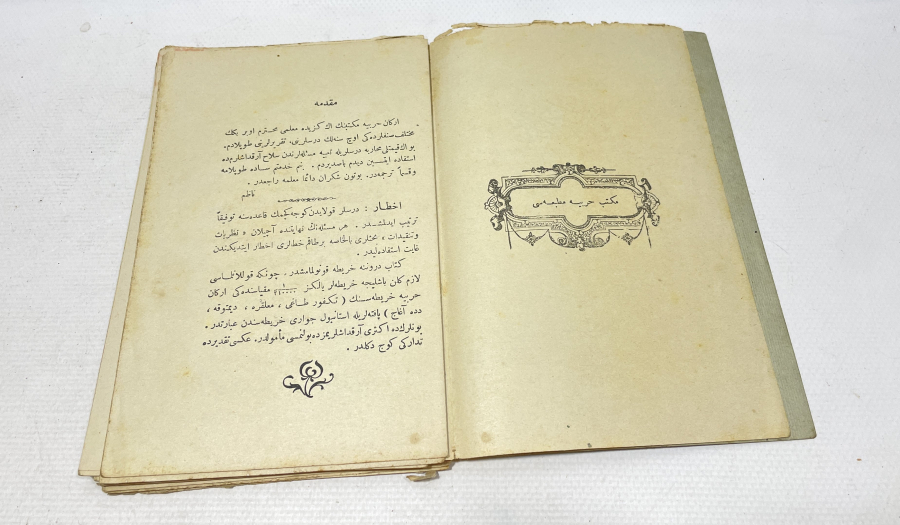 مقدمه
اركان حربيه مكتبنك اك كزيده معلمى محترم اوبر بكك
مختلف صنفلرده كى اوچ سنه لك درسلرينى، تقريرلرينى طوپلادم.
بو اك قيمتلى محاربه درسلريله تعبيه مسئله لرندن سلاح آرقداشلرم ده
استفاده ايتسين ديدم باصديردم . بنم خدمتم ساده طوپلامه
وقسماً ترجمه در. بوتون شكران دائما معلمه راجعدر .
ناظم
اخطار : درسلر قولايدن كوجه كچمك قاعده سنه توفيقاً
ترتيب ايدلمشدر . هر مسئله نك نهايتنده آچيلان ه نظريات
وتنقيدات ، مختلرى بالخاصه برطاقم خطالرى اخطار ايتديكندن
غايت استفاده ليدر .
كتاب دروننه خريطه قونولمامشدر . چونكه قوللانلماسى
لازم كلان باشليجه خريطه لر يالكز مقياسنده كى اركان
حربيه خريطه سنك ( تكفور طاغى ، معلقره ، ديمتوقه ،
دده آغاج ) پافته لريله استانبول جوارى خريطه سندن عبارتدر .
بونلرك ده اكثرى آرقداشلريمزده بولنمسى مأمولدر. عكسى تقديرده
تداركى كوج دكلدر .
مكتب حربيه مطبعه سى